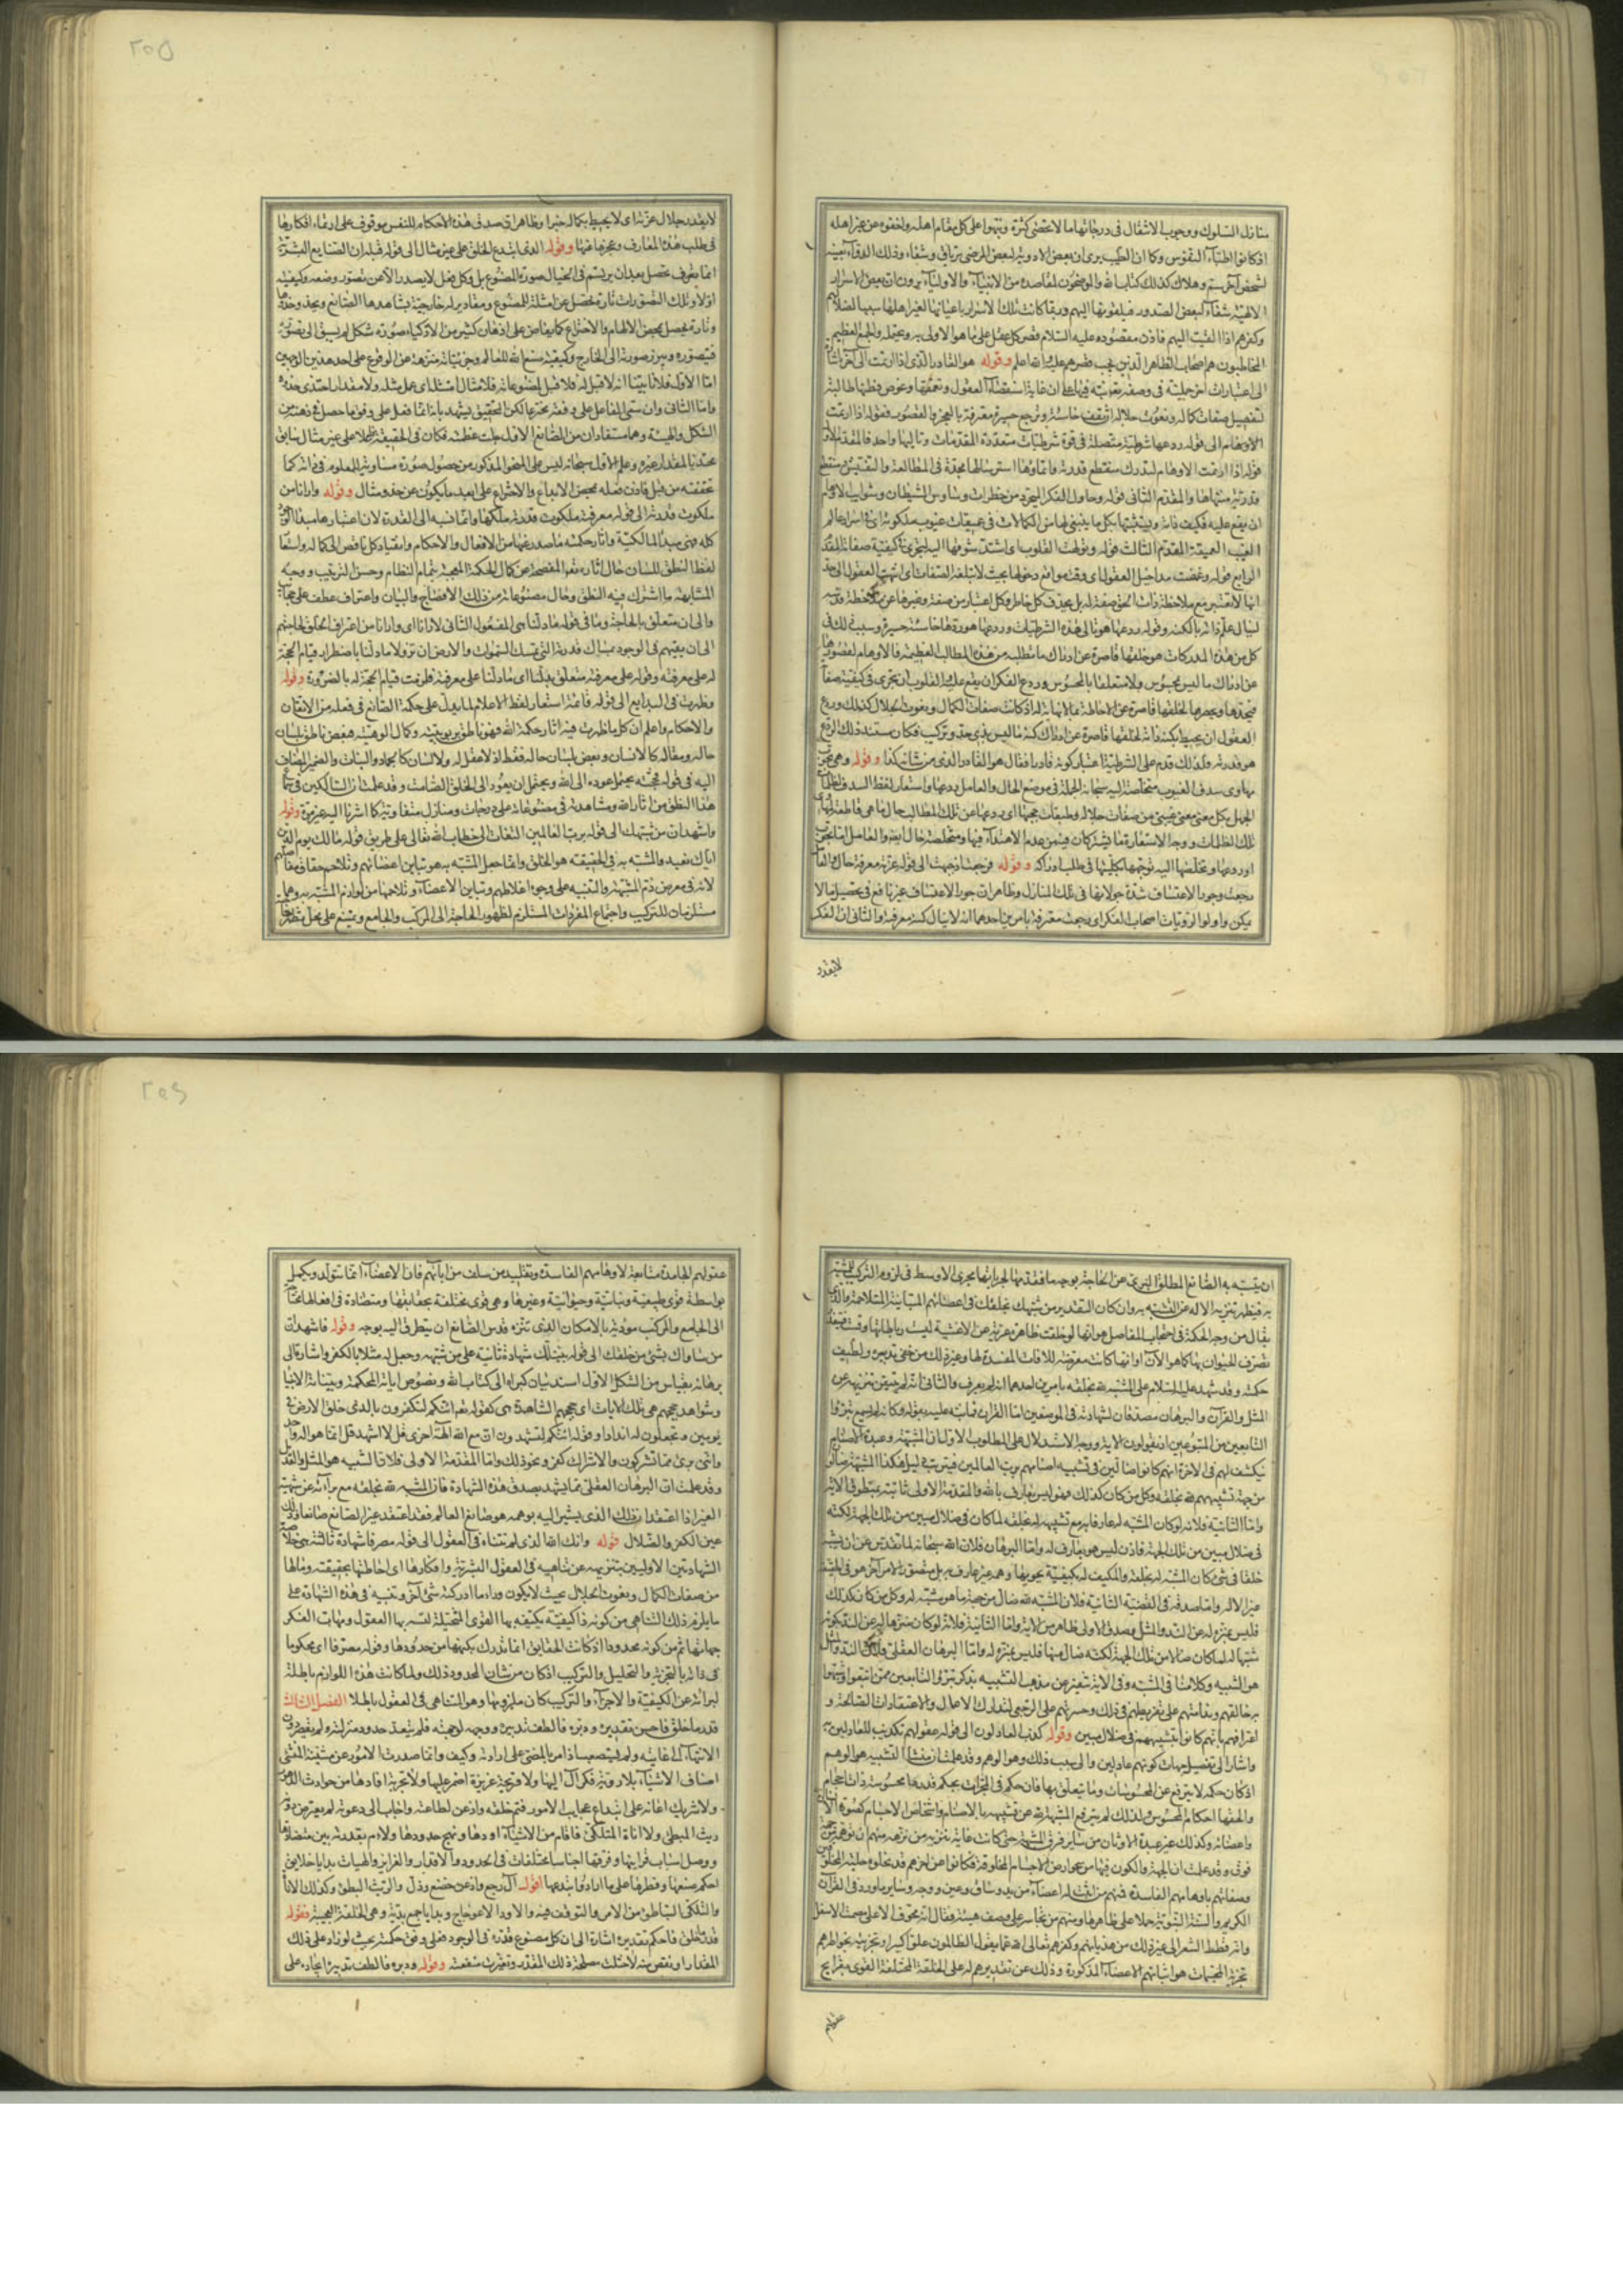 منازل السلوك ووجوب الانتقال فى درجاتها ما لا تحصى كثرة ونبهوا على كل مقام اهله واخفوه عن غير اهله
اذ كانوا اطباء النفوس وكما ان الطبيب يرى ان بعض الادوية لبعض المرضى ترياق وشفاء وذلك الدواء بعينه
لشخص آخر سم وهلاك كذلك كتاب الله والموضحون لمقاصده من الانبياء والاولياء يرون ان بعض الاسرار
الالهية شفاء لبعض الصدور فيلقونها اليهم وربما كانت تلك الاسرار باعيانها لغير اهلها سببا لضلالهم
وكفرهم اذا القيت اليهم فاذن مقصوده عليه السلام قصر كل عقل على ما هو الاولى به و
المخاطبون هم اصحاب الظاهر الذين يجب قصرهم عليه والله اعلم وقوله هو القادر الذى اذا ارتمت الى آخره
الى اعتبارات اخر جليلة فى وصفه تعالى
لتفصيل صفات كماله ونعوت جلاله ان تقف خاسئة وترجع حسيرة معترفة بالعجز والقصور فقوله اذا ارتمت
الاوهام الى قوله ردعها شرطية متصلة فى قوة شرطيات متعددة المقدمات وتاليها واحد فالمقدم الاول
قوله اذا ارتمت الاوهام لتدرك منقطع قدرته
منتهاها والمقدم الثانى قوله وحاول الفكر المجرد من خطرات وساوس الشيطان وشوايب الاوهام
ان يقع عليه فكيف ذاته ويثبتها بكل ما ينبغى لها من الكمالات فى عميقات غيوب ملكوته اى اسرار عالم
الغيب العميقة المقدم الثالث قوله وتولهت القلوب اى اشتد شوقها اليه لتجرى فى كيفية صفاته المقدم
الرابع قوله وغمضت مداخل العقول اى وقت مواقع دخولها بحيث لا تبلغه الصفات اى انتهت العقول الى حد
انها لا تعتبر مع ملاحظة ذات الحق صفة له بل يحذف كل خاطر وكل اعتبار من صفة وغيرها عن ملاحظة
لينال علم ذاته بالكنه وقوله ردعها هو تالى هذه الشرطيات وردعها هو ردها خاسئة حسيرة وسبب ذلك فى
كل من هذه المدركات هو خلقها قاصرة عن ادراك ما تطلبه من هذه المطالب العظيمة فالاوهام لقصورها
عن ادراك ما ليس بمحسوس ولا متعلقا بالمحسوس وردع الفكر ان يقع عليه والقلوب ان تجرى فى كيفية صفا
فتحدها وتحصرها لخلقها قاصرة عن الاحاطة بما لا نهاية له اذ كانت صفات الكمال ونعوت الجلال كذلك وردع
العقول ان يحيط بكنه ذاته لخلقها قاصرة عن ادراك كنه ما ليس بذى حد وتركيب فكان مستند ذلك الردع
هو قدرته فلذلك قدم على الشرطية اعتبار كونه قادرا فقال هو القادر الذى من شانه كذا وقوله وهى تجوب
مهاوى سدف الغيوب متخلصة اليه سبحانه الجملة فى موضع الحال والعامل ردعها واستعار لفظ السدف لظلمات
الجهل بكل معنى معنى غيبى من صفات جلاله وطبقات حجبها اى ردعها عن تلك المطالب حال ما هى قاطعة لمهاوى
تلك الظلمات ووجه الاستعارة ما يشتركان فيه من عدم الاهتداء فيها ومتخلصة حال ايضا والعامل اما تجوب
او ردعها وتخلصها اليه توجهها بكليتها فى طلب ادراكه وقوله فرجعت اذ جبهت الى قوله عزته معرفة حال والعامل
رجعت وجور الاعتساف شدة جولانها فى تلك المنازل وظاهر ان جور الاعتساف غير نافع فى تحصيل ما لا
يمكن واولوا الرويات اصحاب الفكر اى رجعت معترفة بامرين احدهما انه لا ينال كنه معرفته والثانى ان الفكر
لايقدر
لايقدر جلال عزته اى لا يحيط بكماله خبرا وظاهر ان صدق هذه الاحكام للنفس موقوف على ارتماء افكارها
فى طلب هذه المعارف وعجزها عنها وقوله الذى ابتدع الخلق على غير مثال الى قوله قبله ان الصنايع البشرية
انما يعرف تحصل بعد ان يرتسم فى الخيال صورة المصنوع بل وكل فعل لا يصدر الا عن تصور وضعه وكيفيته
اولا وتلك التصورات تارة تحصل عن امثلة للمصنوع ومقادير له خارجية يشاهدها الصانع ويحذو حذوها
وتارة تحصل بمحض الالهام والاختراع كما يفاض على اذهان كثير من الاذكياء صورة شكل لم يسبق الى تصوره
فيتصوره ويبرز صورته الى الخارج وكيفية صنع الله للعالم وجزئياته منزهة عن الوقوع على احد هذين الوجهين
اما الاول فلانا بينا انه لا قبل له فلا قبل لمصنوعاته فلا مثال امتثله اى عمل مثله ولا مقدار احتذى حذوه
واما الثانى وان سمى الفاعل على وفقه مخترعا لكن التحقيق يشهد بانه انما فعل على وفق ما حصل فى ذهنه من
الشكل والهيئة وهما مستفادان من الصانع الاول جلت عظمته فكان فى الحقيقة فاعلا على غير مثال سابق
محتذيا لمقدار غيره وعلم الاول سبحانه ليس على النحو المذكور من حصول صورة مساوية للمعلوم فى ذاته كما
تحققته من قبل فاذن فعله بمحض الابداع والاختراع على ابعد ما يكون عن حذو مثال وقوله وارانا من
ملكوت قدرته الى قوله معرفته ملكوت قدرته ملكها وانما نسبه الى القدرة لان اعتبارها مبدا الوجود
كله فهى مبدا المالكية واثار حكمته ما صدر عنها من الافعال والاحكام وانقياد كل ناقص الى كماله واستعا
لفظ النطق للسان حال اثاره تعالى المفصحة عن كمال الحكمة المعجبة بتمام النظام وحسن الترتيب ووجه
المشابهة ما اشترك فيه النطق وحال مصنوعاته من ذلك الافصاح والبيان واعتراف عطف على عجائب
والى ان متعلق بالحاجة وما فى قوله ما دلنا هى المفعول الثانى لارانا اى وارانا من اعتراف الخلق لحاجتهم
الى ان يقيمهم فى الوجود بمساك قدرته التى تمسك السموات والارض ان تزولا ما دلنا باضطرار قيام الحجة
له على معرفته وقوله على معرفته متعلق بدلنا اى ما دلنا على معرفته فلزمت قيام الحجة له بالضرورة وقوله
وظهرت فى البدايع الى قوله قائمة استعار لفظ الاعلام لما يدل على حكمة الصانع فى فعله من الاتقان
والاحكام واعلم ان كل ما ظهرت فيه اثار حكمة الله فهو ناطق بربوبيته وكمال الوهيته فبعض ناطق بلسان
حاله ومقاله كالانسان وبعض بلسان حاله فقط اذ لا عقل له ولا لسان كالجماد والنبات والضمير المضاف
اليه فى قوله فحجته يحتمل عوده الى الله ويحتمل ان يعود الى الخلق الصامت وقد علمت ان للسالكين فى سماع
هذا النطق من اثار الله ومشاهدته فى مصنوعاته على درجات ومنازل متفاوتة كما اشرنا اليه غير مرة وقوله
واشهد ان من شبهك الى قوله برب العالمين التفات الى خطاب الله تعالى على طريق قوله مالك يوم الدين
اياك نعبد والمشبه به فى الحقيقة هو الخلق وانما جعل المشبه به هو تباين اعضائهم وتلاحم حقاق مفاصلهم
لانه فى معرض ذم المشبهة والتنبيه على وجوه اغلاطهم وتباين الاعضاء وتلاحمها من لوازم المشبه به وهما
مستلزمان للتركيب واجتماع المفردات المستلزم لظهور الحاجة الى المركب والجامع ويمتنع على محل يتطرق
ان يشبه به الصانع المطلق البرى عن الحاجة بوجه ما فقدمها لجريانها مجرى الاوسط فى لزوم التركيب للمشبه
به فيظهر تنزيه الاله عن التشبه به وان كان التقدير من شبهك بخلقك فى اعضائهم المتباينة المتلاحمة والذى
يقال من وجه الحكمة فى احتجاب المفاصل هو انها لو خلقت ظاهرة عرية عن الاغشية ليبست رباطاتها وقست فيتعذر
تصرف الحيوان بها كما هو الان او انها كانت معرضة للافات المفسدة لها وغير ذلك من خفى تدبيره ولطيف
حكمته وقد شهد عليه السلام على المشبه لله بخلقه بامرين احدهما انه لم يعرف والثانى انه لم يتيقن تنزيهه عن
المثل والقرآن والبرهان مصدقان لشهادته فى الموضعين اما القرآن فما نبه عليه بقوله وكانه لم يسمع تبرؤا
التابعين من المتبوعين اذ يقولون الاية ووجه الاستدلال على المطلوب الاول ان المشبهة وعبدة الاصنام
ينكشف لهم فى الاخرة انهم كانوا ضالين فى تشبيه اصنامهم برب العالمين فيترتب دليل هكذا المشبهة ضالون
من جهة تشبيههم لله بخلقه وكل من كان كذلك فهو ليس بعارف بالله والمقدمة الاولى ثابتة بمنطوق الاية
واما الثانية فلانه لو كان المشبه له عارفا به مع تشبيهه له بخلقه لما كان فى ضلال مبين من تلك الجهة لكنه
فى ضلال مبين من تلك الجهة فاذن ليس هو بعارف له واما البرهان فلان الله سبحانه لما تقدس عن ان يشبه
خلقا فى شئ كان المشبه له بخلقه والمكيف له بكيفية يحويها وهمه غير عارف به بل متصور لامر اخر هو فى الحقيقة
غير الاله واما صدقه فى القضية الثانية فلان المشبه لله ضال من جهة ما هو مشبه له وكل من كان كذلك
فليس بمنزه له عن الند والمثل وصدق الاولى ظاهر من الاية واما الثانية فلانه لو كان منزها له عن الند بكونه
شبها له لما كان ضالا من تلك الجهة لكنه ضال منها فليس بمنزه له واما البرهان العقلى فلان الند والمثل
هو الشبيه وكلامنا فى المشبه وفى الاية تنفير عن مذهب التشبيه بذكر تبرؤ التابعين ممن اتبعوا وشبهوا
به خالقهم وندامتهم على تفريطهم فى ذلك وحسرتهم على الرجعى لتدارك الاعمال والاعتقادات الصالحة و
اعترافهم بانهم كانوا بتشبيههم فى ضلال مبين وقوله كذب العادلون الى قوله عقولهم تكذيب للعادلين به
واشارة الى تفصيل جهات كونهم عادلين والى سبب ذلك وهو الوهم وقد علمت ان منشا التشبيه هو الوهم
اذ كان حكمه لا يترفع عن المحسوسات وما يتعلق بها فان حكم فى المجردات بحكم قدرها محسوسة ذات احجام
والحقها احكام المحسوس ولذلك لم يترفع المشبهة لله عن تشبيهه بالاصنام واشخاص الاجسام كصورة الانسان
واعضائه وكذلك غير عبدة الاوثان من ساير فرق المشبهة حتى كانت غاية تنزيه من نزهه منهم ان توهمه فى جهة
فوق وقد علمت ان الجهة والكون فيها من عوارض الاجسام المخلوقة فكانوا عن اخرهم قد نحلوه حلية المخلوقين
وصفاتهم باوهامهم الفاسدة فمنهم من اثبت له اعضاء من يد وساق وعين ووجه وساير ما ورد فى القرآن
الكريم والسنة النبوية حملا على ظاهرها ومنهم من تجاسر على وصف هيئته فقال انه مجوف الاعلى مصمت الاسفل
وانه قطط الشعر الى غير ذلك من هذيانهم وكفرهم تعالى الله عما يقول الظالمون علوا كبيرا وتجزيته بخواطرهم
تجزئة المجسمات هو اثباتهم الاعضاء المذكورة وذلك عن تقديرهم له على الخلقة المختلفة القوى بقرايح
عقولهم
عقولهم الجامدة متابعة لاوهامهم الفاسدة وتقليد من سلف من ابائهم فان الاعضاء انما تتولد وتكمل
بواسطة قوى طبيعية ونباتية وحيوانية وغيرها وهى قوى مختلفة بحقايقها ومتضادة فى افعالها محتاجة
الى الجامع والمركب موذنة بالامكان الذى تنزه قدس الصانع ان يتطرق اليه بوجه وقوله فاشهد ان
من ساواك بشئ من خلقك الى قوله بيناتك شهادة ثانية على من شبهه وجعل له مثلا بالكفر واشارة الى
برهانه بقياس من الشكل الاول اسند بيان كبراه الى كتاب الله ونصوص اياته المحكمة وبيناته الانبياء
وشواهد حججهم هى تلك الايات اى حججهم الشاهدة هى كقوله تعالى ائنكم لتكفرون بالذى خلق الارض فى
يومين وتجعلون له اندادا وقوله ائنكم لتشهدون ان مع الله آلهة اخرى قل لا اشهد قل انما هو اله واحد
واننى برئ مما تشركون والاشراك كفر ونحو ذلك واما المقدمة الاولى فلان التشبيه هو المثل والعدل
وقد علمت ان البرهان العقلى مما يشهد بصدق هذه الشهادة فان المشبه لله بخلقه مع براءته عن شبهية
الغير اذا اعتقد ان ذلك الذى يشير اليه بوهمه هو صانع العالم فقد اعتقد غير الصانع صانعا وذلك
عين الكفر والضلال قوله وانك الله الذى لم تتناه فى العقول الى قوله مصرفا شهادة ثالثة هى خلاصة
الشهادتين الاوليين بتنزيهه عن تناهيه فى العقول البشرية وافكارها اى احاطتها بحقيقته وما لها
من صفات الكمال ونعوت الجلال بحيث لا يكون وراء ما ادركته شئ آخر وتنبيه فى هذه الشهادة على
ما يلزم ذلك التناهى من كونه ذا كيفية يكيفه بها القوى المتخيلة لتثبته بها العقول ومهاب الفكر
جهاتها ثم من كونه محدودا اذ كانت الحقايق انما تدرك بكنهها من حدودها وقوله مصرفا اى محكوما
فى ذاته بالتجزية والتحليل والتركيب اذ كان من شان المحدود ذلك ولما كانت هذه اللوازم باطلة
لبراءته عن الكيفية والاجزاء والتركيب كان ملزومها وهو التناهى فى العقول باطلا الفصل الثالث
قدر ما خلق فاحسن تقديره ودبره فالطف تدبيره ووجهه لوجهته فلم يتعد حدود منزلته ولم يقصر دون
الانتهاء الى غايته ولم يستصعب اذ امر بالمضى على ارادته وكيف وانما صدرت الامور عن مشيته المنشئ
اصناف الاشياء بلا روية فكر آل اليها ولا قريحة غريزة اضمر عليها ولا تجربة افادها من حوادث الدهور
ولا شريك اعانه على ابتداع عجايب الامور فتم خلقه واذعن لطاعته واجاب الى دعوته لم يعترض دونه
ريث المبطئ ولا اناة المتلكئ فاقام من الاشياء اودها ونهج حدودها ولاءم بقدرته بين متضادها
ووصل اسباب قراينها وفرقها اجناسا مختلفات فى الحدود والاقدار والغرايز والهيئات بدايا خلايق
احكم صنعها وفطرها على ما اراد وابتدعها اقول آل رجع واذعن خضع وذل والريث البطؤ وكذلك الاناة
والتلكؤ التباطؤ عن الامر والتوقف فيه والاود الاعوجاج وبدايا جمع بدية وهى الخلقة العجيبة فقوله
قدر ما خلق فاحكم تقديره اشارة الى ان كل مصنوع قدره فى الوجود فعلى وفق حكمته بحيث لو زاد على ذلك
المقدار او نقص منه لاختلت مصلحة ذلك المقدر وتغيرت منفعته وقوله ودبره فالطف تدبيره ايجاده على